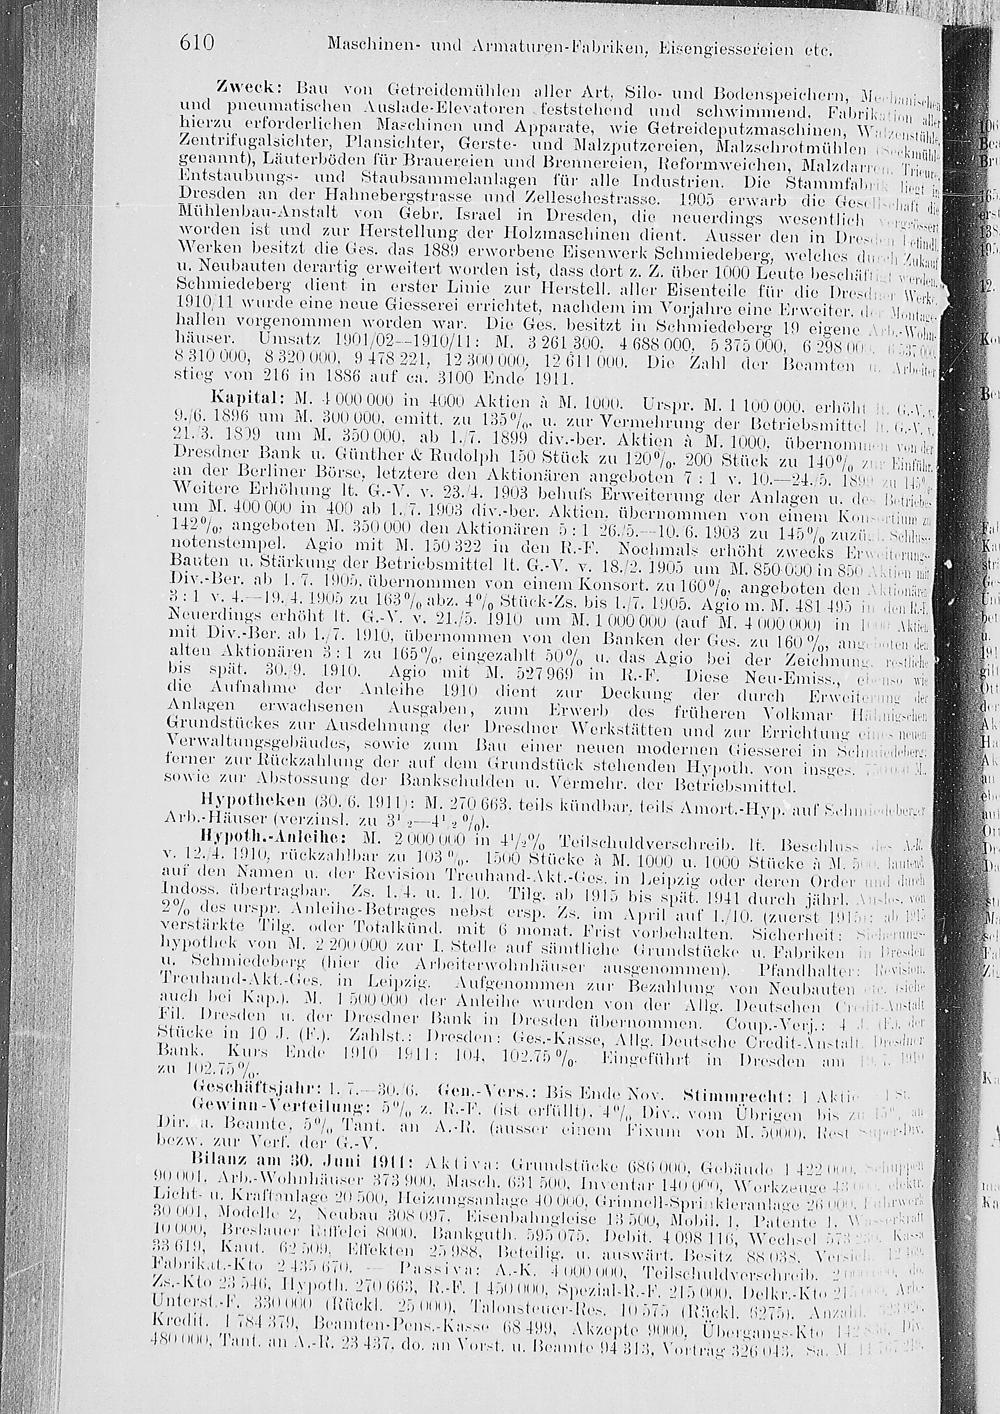 610 Maschinen- und Armaturen-Fabriken, Eisengiessereien etc.
Zweck: Bau von Getreidemühlen aller Art, Silo- und Bodenspeichern, Mechanischen
und pneumatischen Auslade-Elevatoren feststehend und schwimmend. Fabrikation aller
hierzu erforderlichen Maschinen und Apparate, wie Getreideputzmaschinen, Walzenstühle,
Zentrifugalsichter, Plansichter, Gerste- und Malzputzereien, Malzschrotmühlen (Seckmühle
genannt), Läuterböden für Brauereien und Brennereien, Reformweichen, Malzdarren, Trieure,
Entstaubungs- und Staubsammelanlagen für alle Industrien. Die Stammfabrik liegt in
Dresden an der Hahnebergstrasse und Zelleschestrasse. 1905 erwarb die Gesellschaft die
Mühlenbau-Anstalt von Gebr. Israel in Dresden, die neuerdings wesentlich vergrössert
worden ist und zur Herstellung der Holzmaschinen dient. Ausser den in Dresden befindl.
Werken besitzt die Ges. das 1889 erworbene Eisenwerk Schmiedeberg, welches durch Zukauf
u. Neubauten derartig erweitert worden ist, dass dort z. Z. über 1000 Leute beschäftigt werden.
Schmiedeberg dient in erster Linie zur Herstell. aller Eisenteile für die Dresdner Werke.
1910/11 wurde eine neue Giesserei errichtet, nachdem im Vorjahre eine Erweiter. der Montage-
hallen vorgenommen worden war. Die Ges. besitzt in Schmiedeberg 19 eigene Arb.-Wohn-
häuser. Umsatz 1901/02—1910/11: M. 3 261 300, 4 688 000, 5 375 000, 6 298 000,
8 310 000, 8 320 000, 9 478 221, 12 300 000, 12 611 000. Die Zahl der Beamten u. Arbeiter
stieg von 216 in 1886 auf ca. 3100 Ende 1911.
Kapital: M. 4 000 000 in 4000 Aktien à M. 1000. Urspr. M. 1 100 000, erhöht lt. G.-V. v.
9./6. 1896 um M. 300 000, emitt. zu 135%, u. zur Vermehrung der Betriebsmittel lt. G.-V. v.
21./3. 1899 um M. 350 000, ab 1./7. 1899 div.-ber. Aktien à M. 1000, übernommen von der
Dresdner Bank u. Günther & Rudolph 150 Stück zu 120%, 200 Stück zu 140% zur Einführ.
an der Berliner Börse, letztere den Aktionären angeboten 7 : 1 v. 10.—24./5. 1899 zu 145%.
Weitere Erhöhung lt. G.-V. v. 23./4. 1903 behufs Erweiterung der Anlagen u. des Betriebes
um M. 400 000 in 400 ab 1./7. 1903 div.-ber. Aktien, übernommen von einem Konsortium zu
142%, angeboten M. 350 000 den Aktionären 5 : 1 26./5.—10./6. 1903 zu 145% zuzügl. Schluss-
notenstempel. Agio mit M. 150 322 in den R.-F. Nochmals erhöht zwecks Erweiterungs-
Bauten u. Stärkung der Betriebsmittel lt. G.-V. v. 18./2. 1905 um M. 850 000 in 850 Aktien mit
Div.-Ber. ab 1./7. 1905, übernommen von einem Konsort. zu 160%, angeboten den Aktionären
3 : 1 v. 4.—19./4. 1905 zu 163% abz. 4% Stück-Zs. bis 1./7. 1905. Agio m. M. 481 495 in den R.-F.
Neuerdings erhöht lt. G.-V. v. 21./5. 1910 um M. 1 000 000 (auf M. 4 000 000) in 1000 Aktien
mit Div.-Ber. ab 1./7. 1910, übernommen von den Banken der Ges. zu 160%, angeboten den
alten Aktionären 3 : 1 zu 165%, eingezahlt 50% u. das Agio bei der Zeichnung, restliche
bis spät. 30./9. 1910. Agio mit M. 527 969 in R.-F. Diese Neu-Emiss., ebenso wie
die Aufnahme der Anleihe 1910 dient zur Deckung der durch Erweiterung der
Anlagen erwachsenen Ausgaben, zum Erwerb des früheren Volkmar Hähnigschen
Grundstückes zur Ausdehnung der Dresdner Werkstätten und zur Errichtung eines neuen
Verwaltungsgebäudes, sowie zum Bau einer neuen modernen Giesserei in Schmiedeberg,
ferner zur Rückzahlung der auf dem Grundstück stehenden Hypoth. von insges. M.
sowie zur Abstossung der Bankschulden u. Vermehr. der Betriebsmittel.
Hypotheken (30./6. 1911): M. 270 663, teils kündbar, teils Amort.-Hyp. auf Schmiedeberger
Arb.-Häuser (verzinsl. zu 3½—4½%).
Hypoth.-Anleihe: M. 2 000 000 in 4½% Teilschuldverschreib. lt. Beschluss des A.-R.
v. 12./4. 1910, rückzahlbar zu 103%. 1500 Stücke à M. 1000 u. 1000 Stücke à M. 500, lautend
auf den Namen u. der Revision Treuhand-Akt.-Ges. in Leipzig oder deren Order und durch
Indoss. übertragbar. Zs. 1./4. u. 1./10. Tilg. ab 1915 bis spät. 1941 durch jährl. Auslos. von
2% des urspr. Anleihe-Betrages nebst ersp. Zs. im April auf 1./10. (zuerst 1915); ab 1915
verstärkte Tilg. oder Totalkünd. mit 6 monat. Frist vorbehalten. Sicherheit: Sicherungs-
hypothek von M. 2 200 000 zur I. Stelle auf sämtliche Grundstücke u. Fabriken in Dresden
u. Schmiedeberg (hier die Arbeiterwohnhäuser ausgenommen). Pfandhalter: Revision,
Treuhand-Akt.-Ges. in Leipzig. Aufgenommen zur Bezahlung von Neubauten etc. (siehe
auch bei Kap.). M. 1 500 000 der Anleihe wurden von der Allg. Deutschen Credit-Anstalt
Fil. Dresden u. der Dresdner Bank in Dresden übernommen. Coup.-Verj.: 4 J. (F.), der
Stücke in 10 J. (F.). Zahlst.: Dresden: Ges.-Kasse, Allg. Deutsche Credit-Anstalt, Dresdner
Bank. Kurs Ende 1910—1911: 104, 102.75%. Eingeführt in Dresden am 1910
zu 102.75%.
Geschäftsjahr: 1./7.—30./6. Gen.-Vers.: Bis Ende Nov. Stimmrecht: 1 Aktie 1 St.
Gewinn-Verteilung: 5% z. R.-F. (ist erfüllt), 4% Div., vom Übrigen bis zu 15% an
Dir. u. Beamte, 5% Tant. an A.-R. (ausser einem Fixum von M. 5000), Rest Super-Div.
bezw. zur Verf. der G.-V.
Bilanz am 30. Juni 1911: Aktiva: Grundstücke 686 000, Gebäude 1 422 000, Schuppen
90 001, Arb.-Wohnhäuser 373 900, Masch. 631 500, Inventar 140 000, Werkzeuge elektr.
Licht- u. Kraftanlage 20 500, Heizungsanlage 40 000, Grinnell-Sprinkleranlage 26 000, Fuhrwerk
30 001, Modelle 2, Neubau 308 097, Eisenbahngleise 13 500, Mobil. 1, Patente 1, Wasserkraft
10 000, Breslauer Riffelei 8000, Bankguth. 595 075, Debit. 4 098 116, Wechsel Kassa
33 619, Kaut. 62 509, Effekten 25 988, Beteilig. u. auswärt. Besitz 88 038, Versich.
Fabrikat.-Kto 2 435 670. — Passiva: A.-K. 4 000 000, Teilschuldverschreib. do.
Zs.-Kto 23 546, Hypoth. 270 663, R.-F. 1 450 000, Spezial-R.-F. 215 000, Delkr.-Kto Arb.-
Unterst.-F. 330 000 (Rückl. 25 000), Talonsteuer-Res. 10 575 (Rückl. 6275), Anzahl.
Kredit. 1 784 379, Beamten-Pens.-Kasse 68 499, Akzepte 9000, Übergangs-Kto Div.
480 000, Tant. an A.-R. 23 437, do. an Vorst. u. Beamte 94 313, Vortrag 326 043. Sa. M.